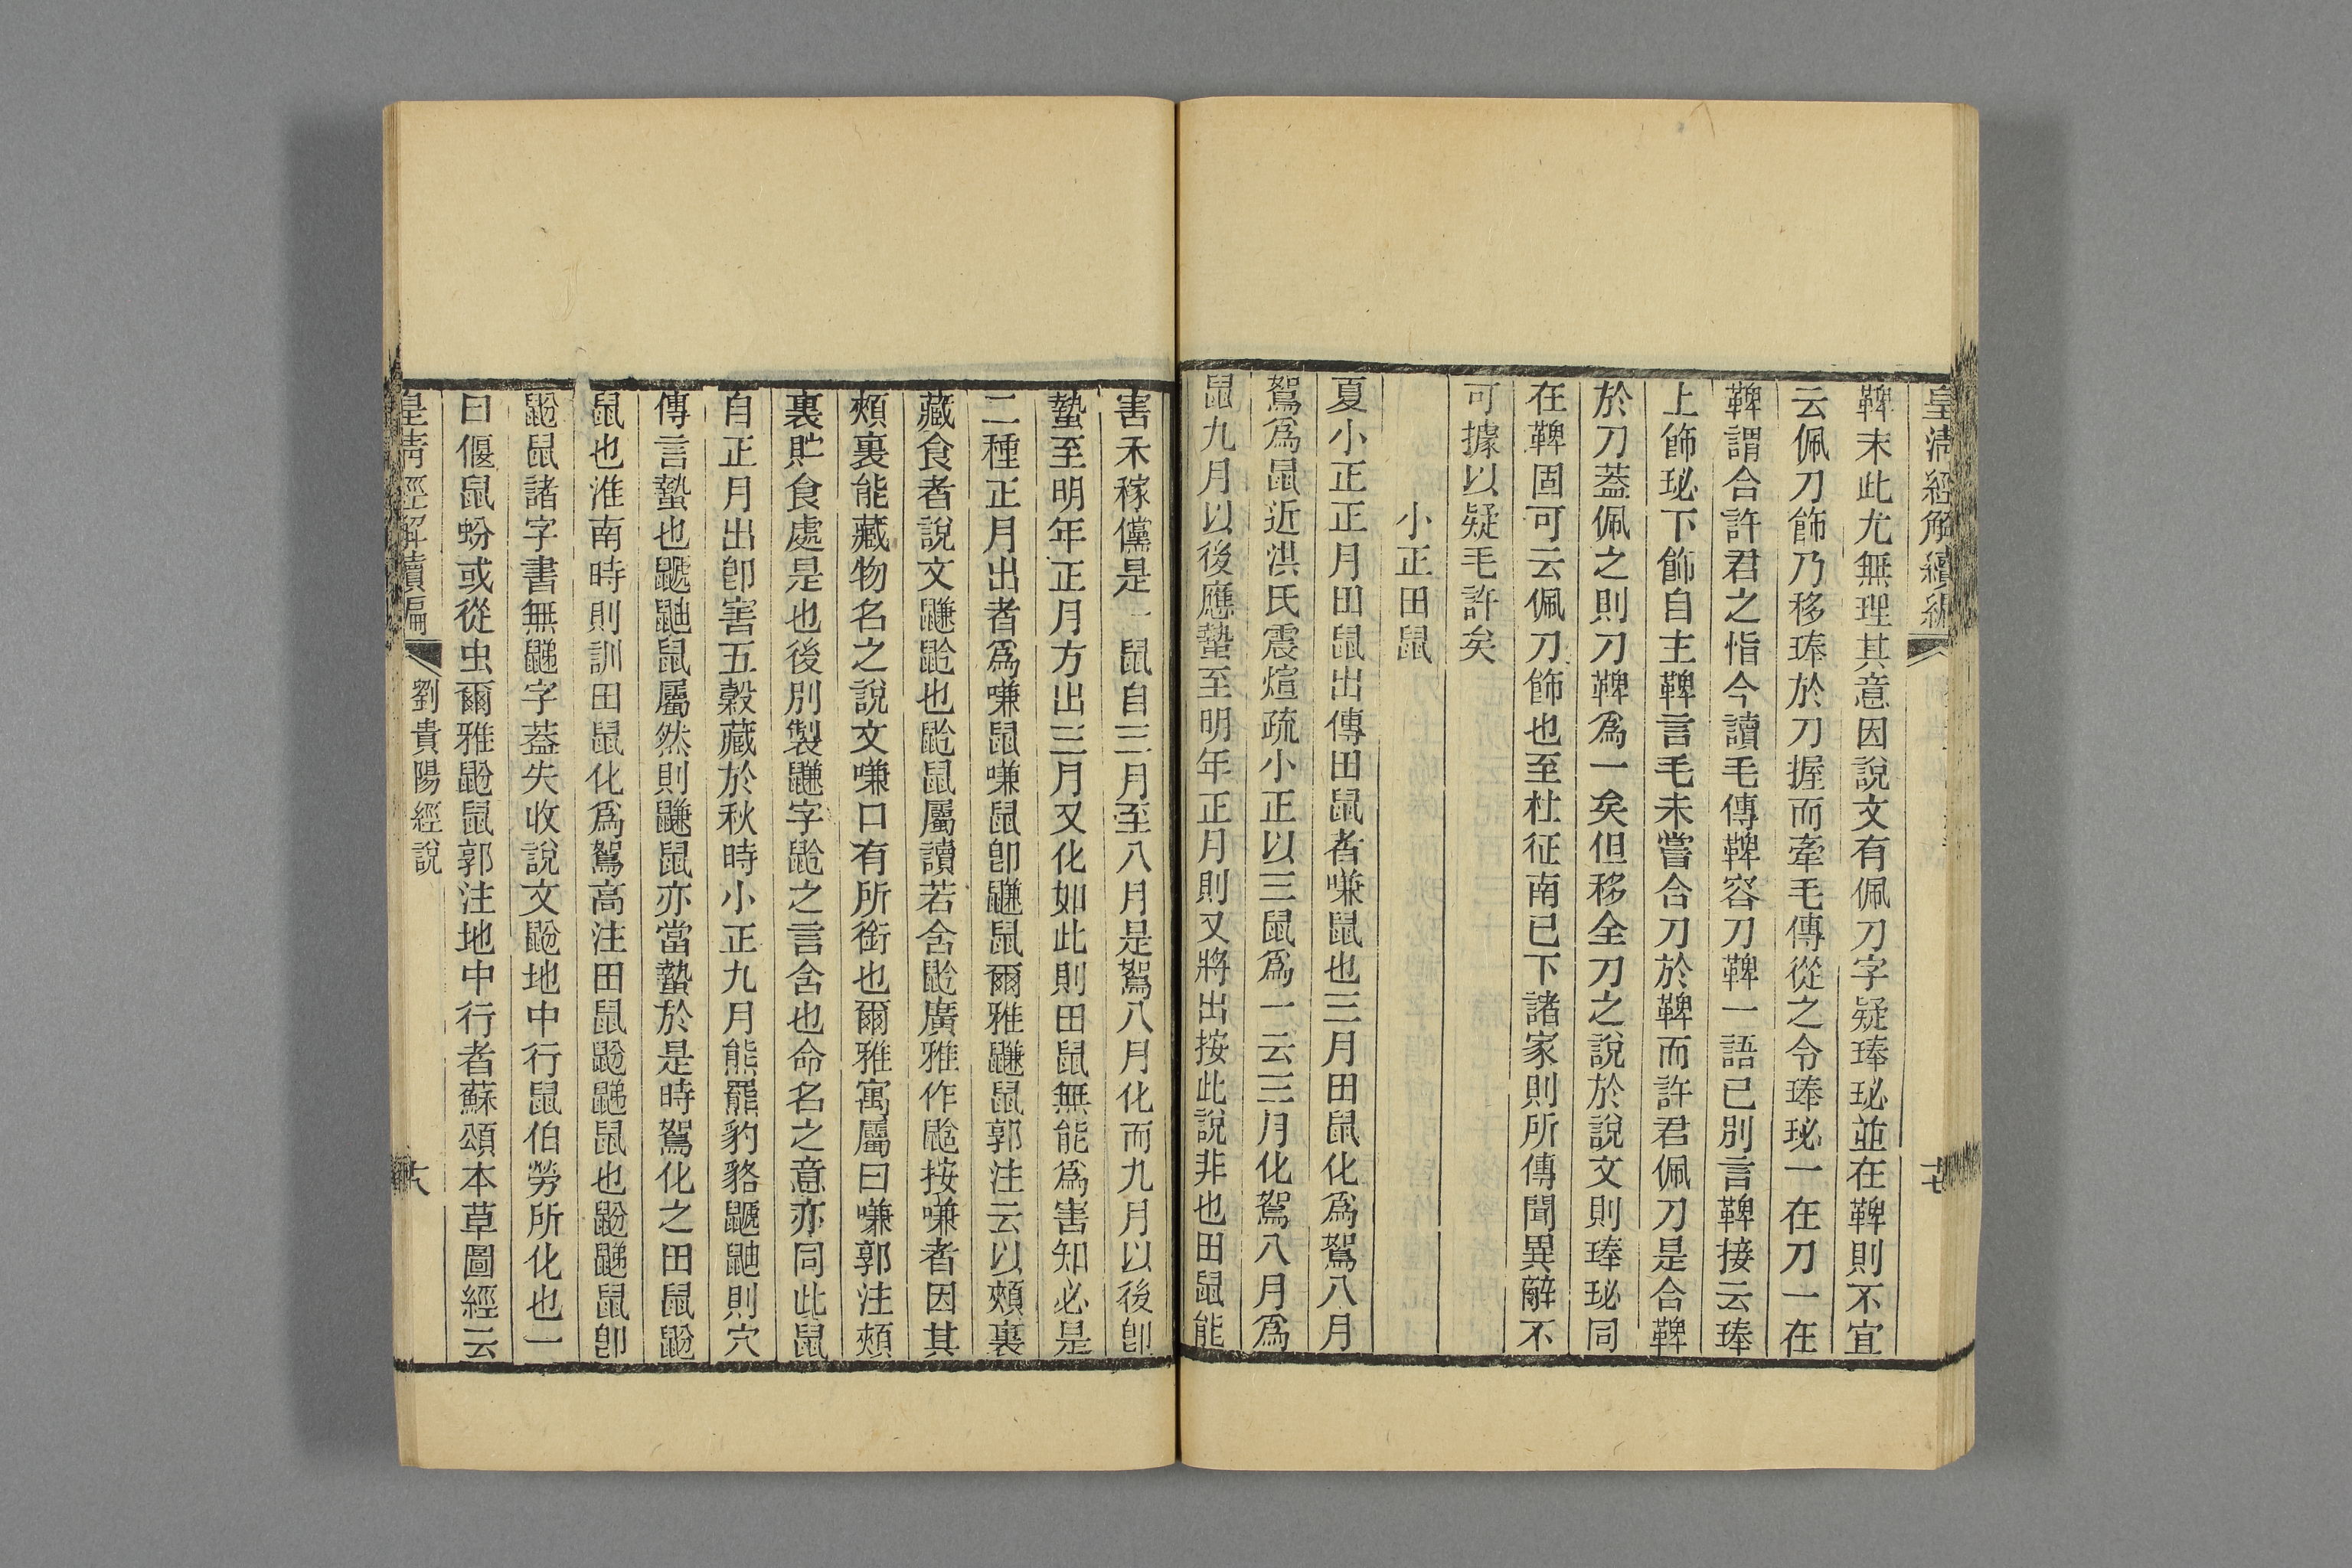 皇清經解續編
十七
鞞末此尤無理其意因說文有佩刀字疑琫珌並在鞞則不宜
云佩刀飾乃移琫於刀握而牽毛傳從之令琫珌一在刀一在
鞞謂合許君之恉今讀毛傳鞞容刀鞞一語已別言鞞接云琫
上飾珌下飾自主鞞言毛未嘗合刀於鞞而許君佩刀是合鞞
於刀蓋佩之則刀鞞爲一矣但移全刀之說於說文則琫珌同
在鞞固可云佩刀飾也至杜征南已下諸家則所傳聞異辭不
可據以疑毛許矣
小正田鼠
夏小正正月田鼠出傳田鼠者嗛鼠也三月田鼠化爲鴽八月
鴽爲鼠近洪氏震煊疏小正以三鼠爲一云三月化鴽八月爲
鼠九月以後應蟄至明年正月則又將出按此說非也田鼠能
害禾稼儻是一鼠自三月至八月是鴽八月化而九月以後卽
蟄至明年正月方出三月又化如此則田鼠無能爲害知必是
二種正月出者爲嗛鼠嗛鼠卽鼸鼠爾雅鼸鼠郭注云以頰裏
藏食者說文鼸䶃也䶃鼠屬讀若含䶃廣雅作䶃按嗛者因其
頰裏能藏物名之說文嗛口有所銜也爾雅寓屬曰嗛郭注頰
裏貯食處是也後別製鼸字䶃之言含也命名之意亦同此鼠
自正月出卽害五穀藏於秋時小正九月熊羆豹貉鼶鼬則穴
傳言蟄也鼶鼬鼠屬然則鼸鼠亦當蟄於是時鴽化之田鼠鼢
鼠也淮南時則訓田鼠化爲鴽高注田鼠鼢鼷鼠也鼢鼷鼠卽
鼢鼠諸字書無鼷字蓋失收說文鼢地中行鼠伯勞所化也一
曰偃鼠蚡或從虫爾雅鼢鼠郭注地中行者蘇頌本草圖經云
皇清經解續編
劉貴陽經說
十八